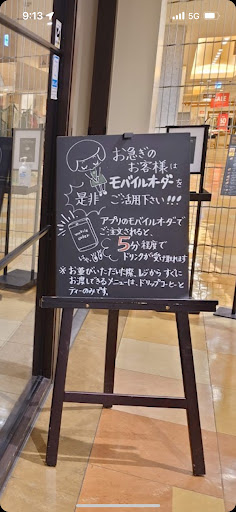 9:13
5G
SALE
お急ぎの
お客様は
是非
モバイルオーダーを
ご活用下さい!!!
アプリのモバイルオーダーで
ご注文されると、
5分程度で
ドリンクが受け取れます
※お並びいただいた際、レジからすぐに
お渡しできるメニューは、ドリップコーヒーと
ティーのみです。